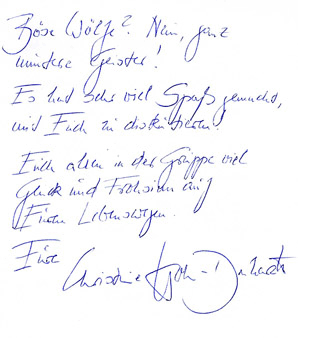 Böse Wölfe? Nein, ganz
muntere Geister!
Es hat sehr viel Spaß gemacht,
mit Euch zu diskutieren.
Euch allen in der Gruppe viel
Glück und Frohsinn auf
Euren Lebenswegen.
Eure
Christine